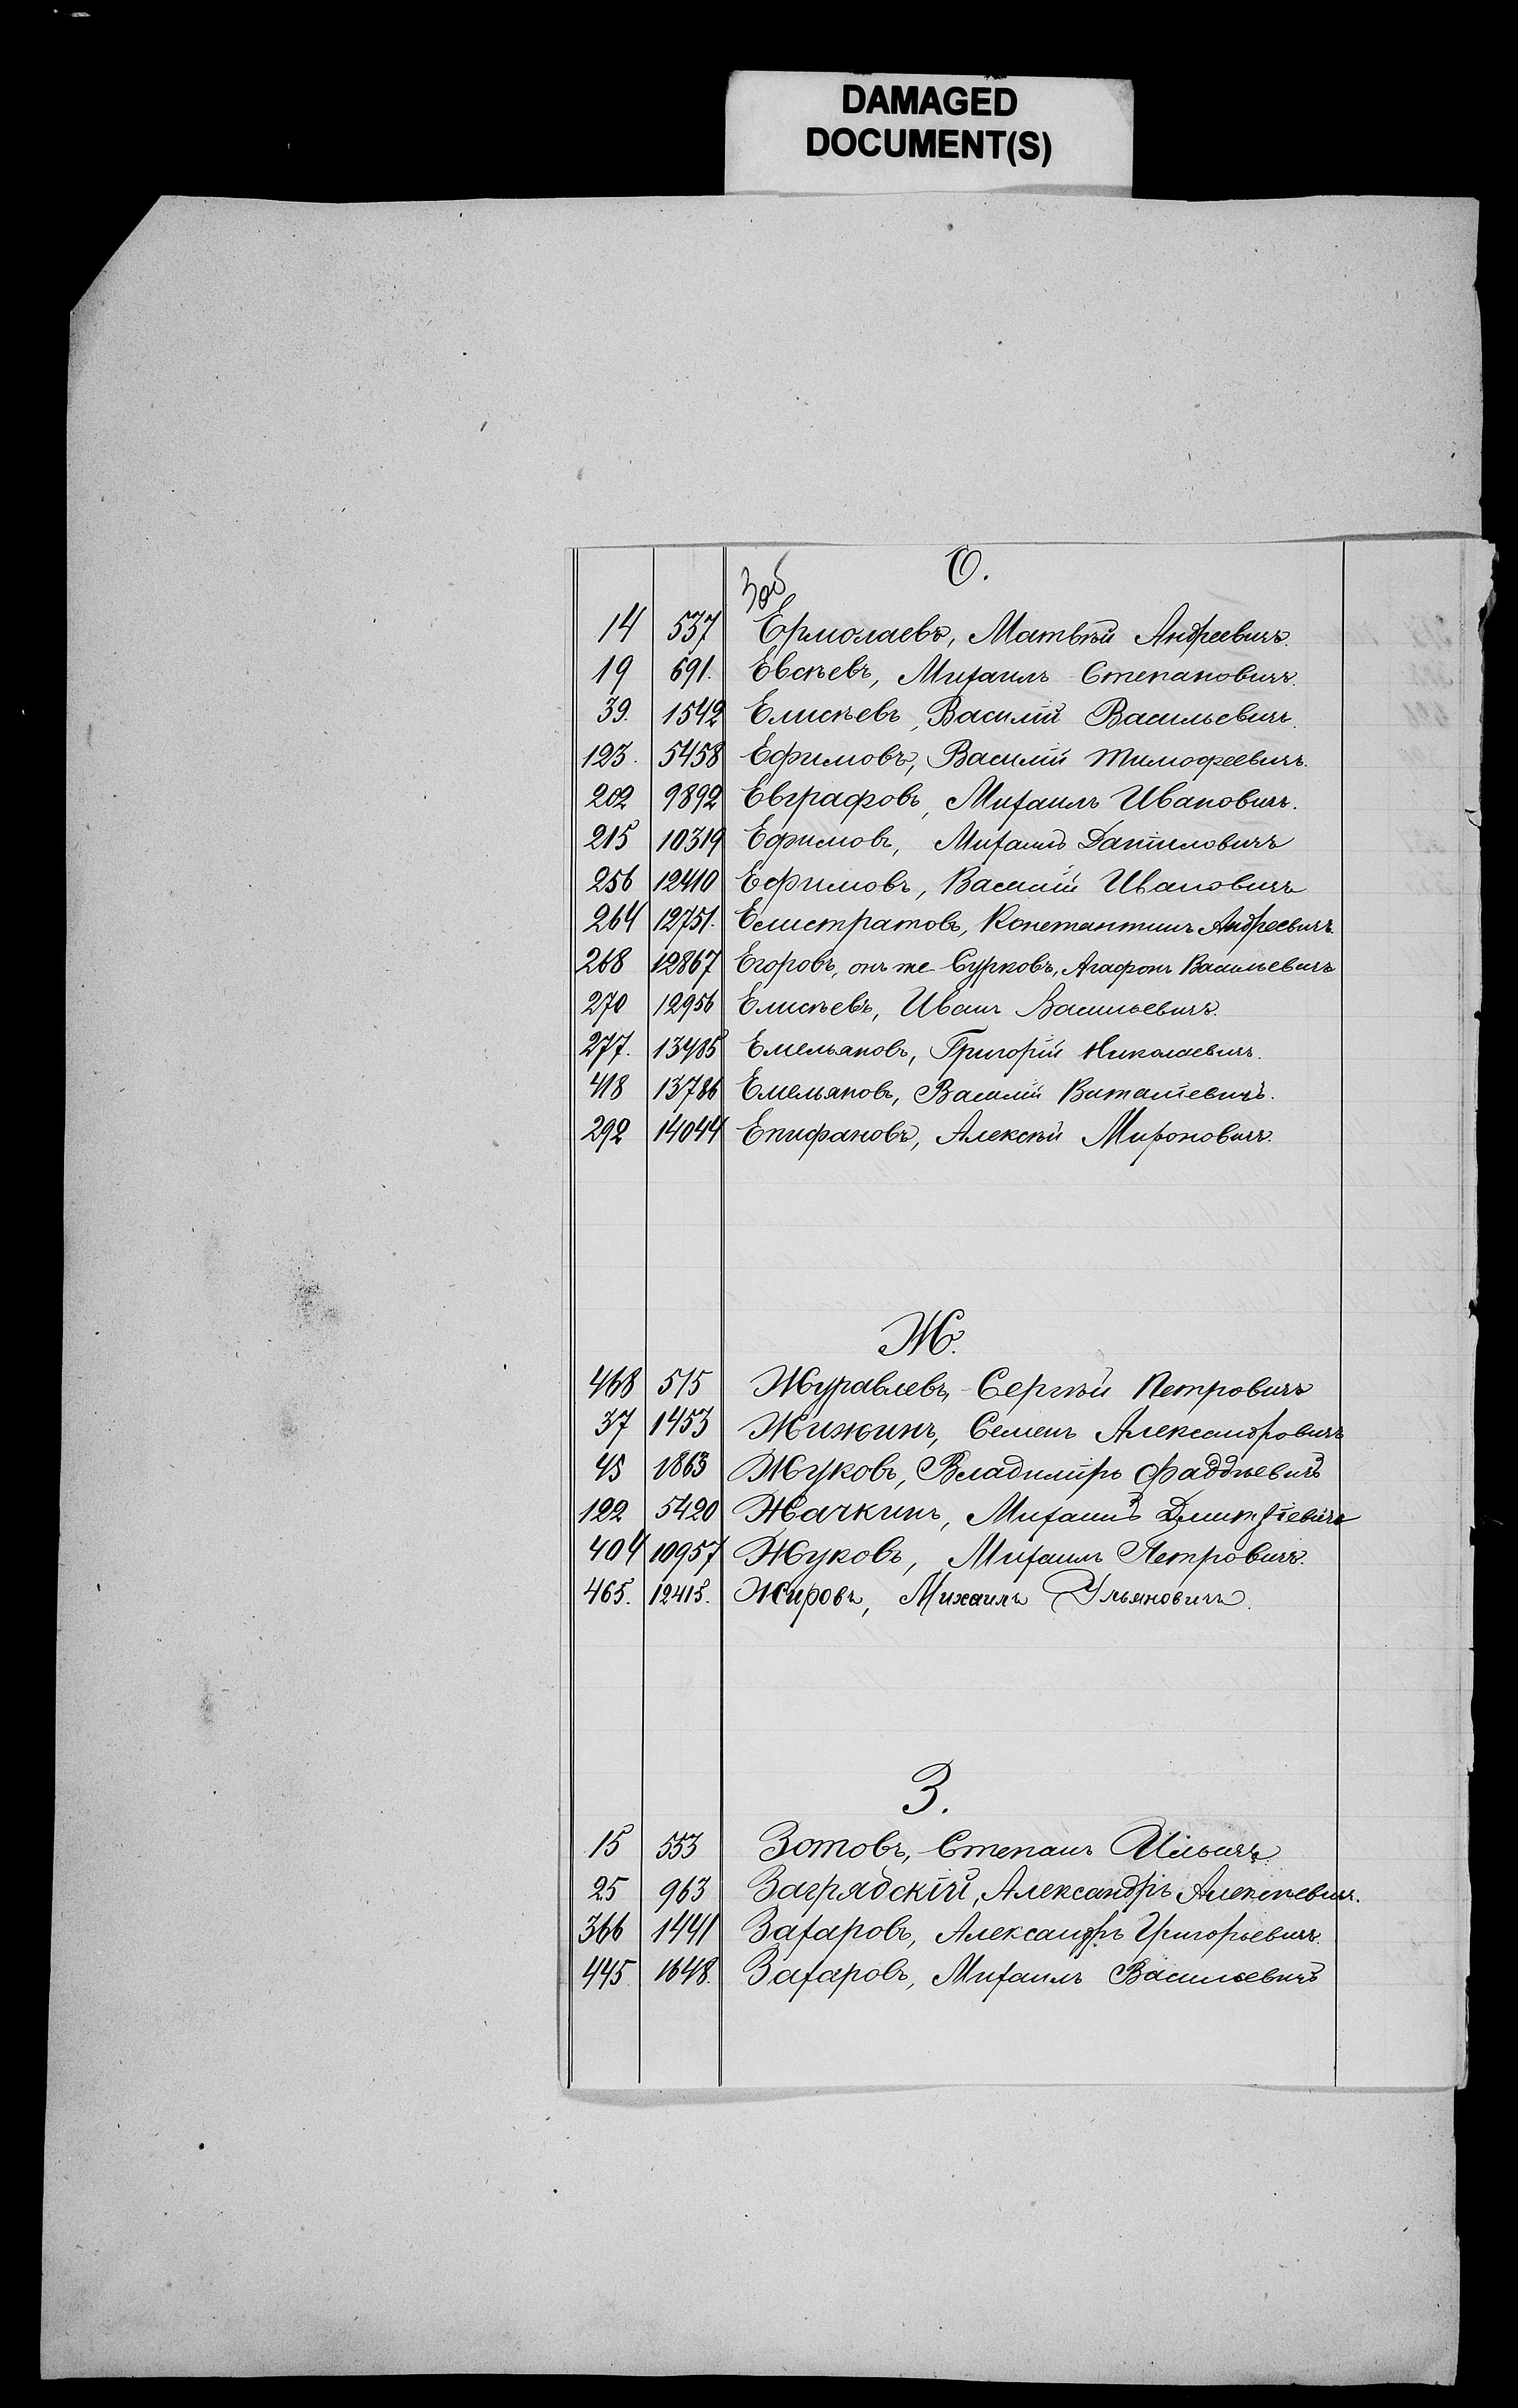 DAMAGED
DOCUMENT(S)
Е.
14 537 Ермолаевъ, Матвѣй Андреевичъ.
19 691. Евсѣевъ, Михаилъ Степановичъ.
39. 1542 Елисѣевъ, Василій Васильевичъ.
123. 5458 Ефимовъ, Василій Тимофеевичъ.
202 9892 Евграфовъ, Михаилъ Ивановичъ.
215 10319 Ефимовъ, Михаилъ Даниловичъ
256 12410 Ефимовъ, Василій Ивановичъ
264 12751. Елистратовъ, Константинъ Андреевичъ.
268 12867 Егоровъ, онъ же Сурковъ, Агафонъ Васильевичъ
270 12956 Елисѣевъ, Иванъ Васильевичъ.
277. 13485 Емельяновъ, Григорій Николаевичъ.
418 13786 Емельяновъ, Василій Виталіевичъ.
292 14044 Епифановъ, Алексѣй Мироновичъ.
Ж.
468 515 Журавлевъ, Сергѣй Петровичъ
37 1453 Жижинъ, Семенъ Александровичъ
45 1863 Жуковъ, Владиміръ Фаддѣевичъ
122 5420 Жачкинъ, Михаилъ Дмитріевичъ
404 10957 Жуковъ, Михаилъ Петровичъ.
465. 12415. Жировъ, Михаилъ Ульяновичъ.
З.
15 553 Зотовъ, Степанъ Ильичъ.
25 963 Заградскій, Александръ Алексѣевичъ.
366 1441 Захаровъ, Александръ Григорьевичъ.
445. 1648. Захаровъ, Михаилъ Васильевичъ